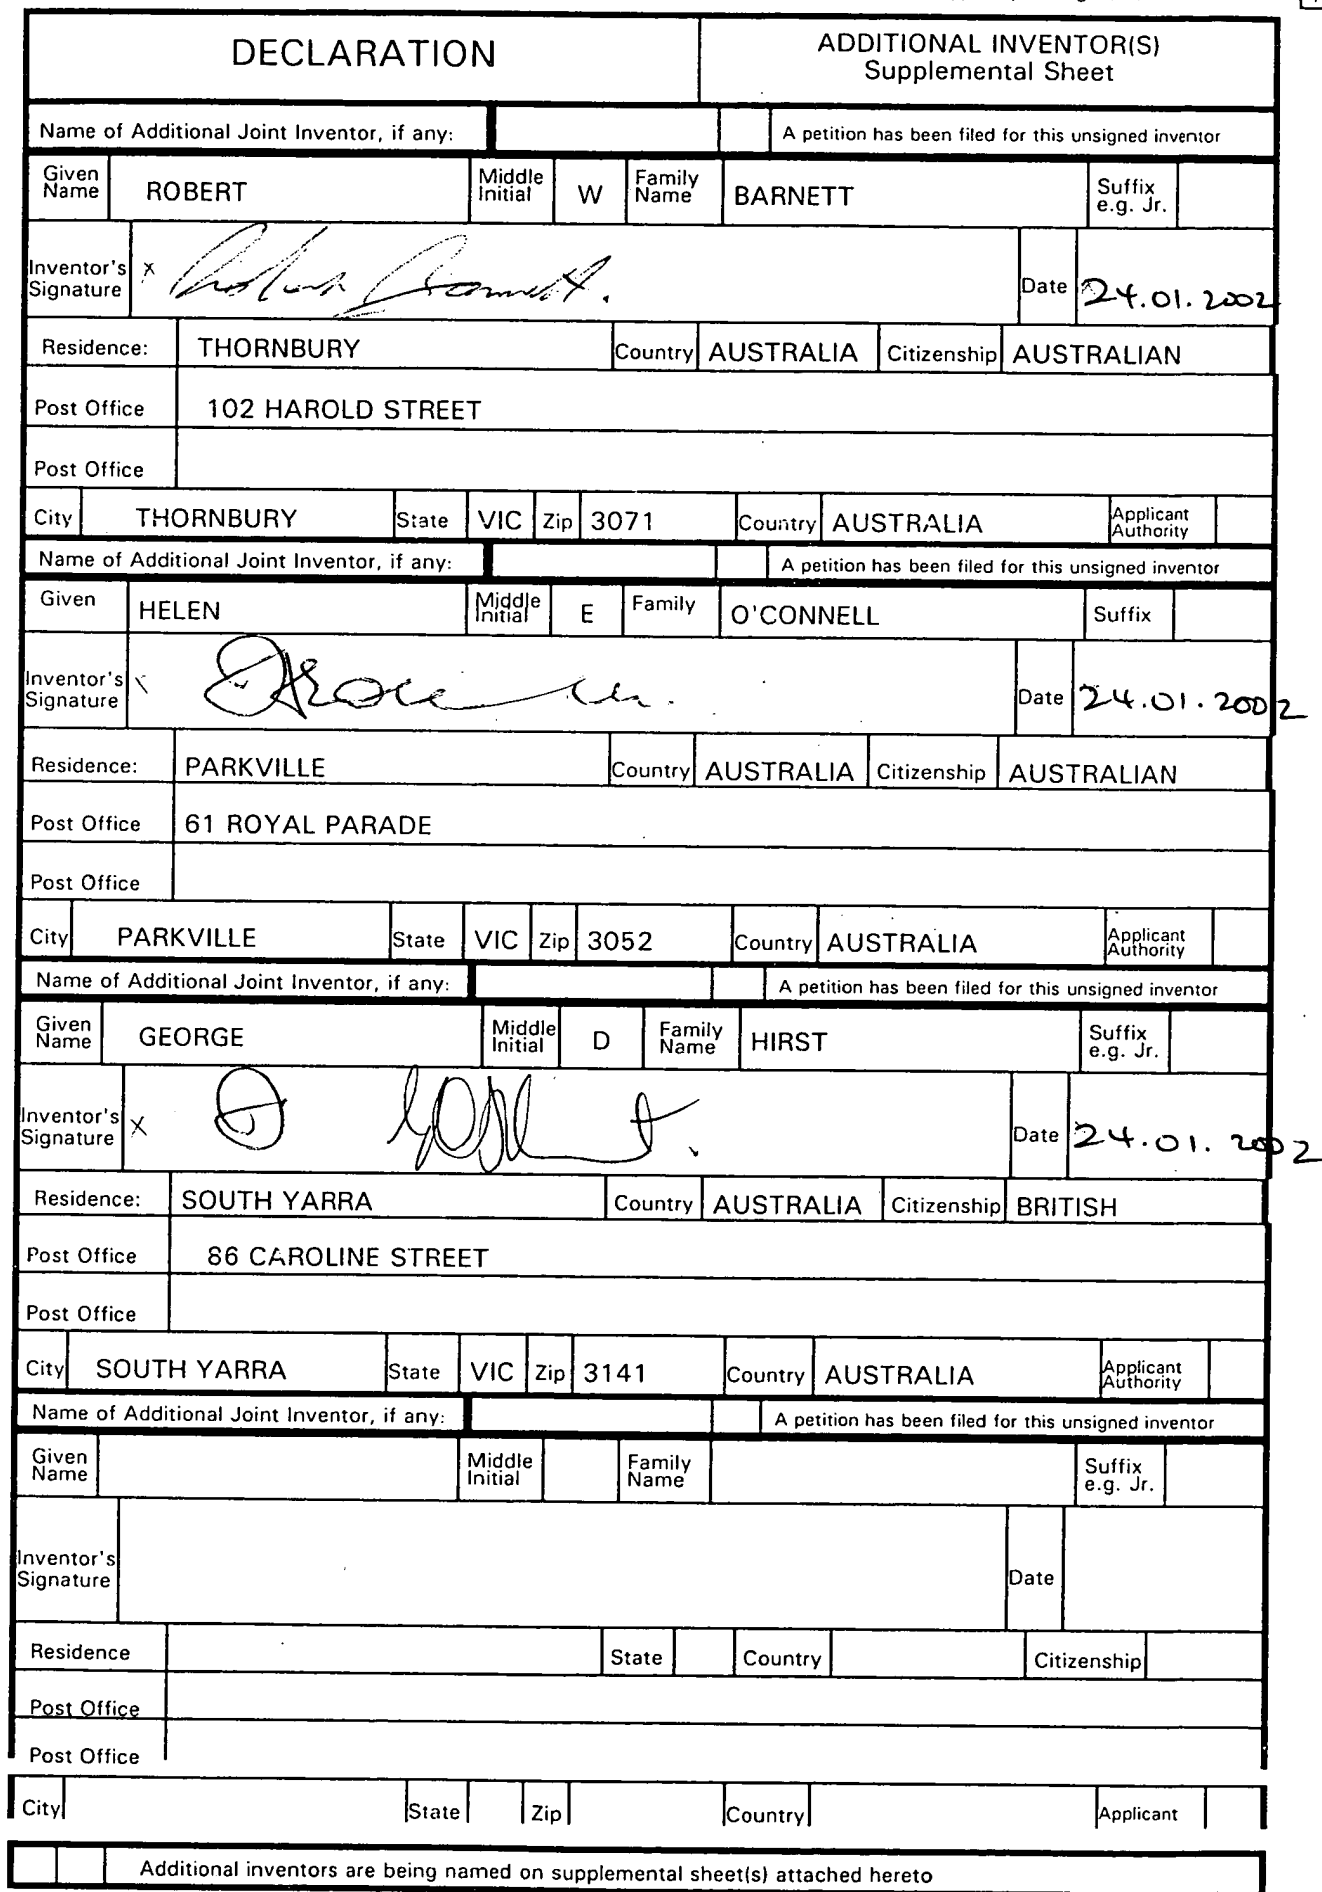 DECLARATION ADDITIONAL INVENTOR(S)
Supplemental Sheet
Name of Additional Joint Inventor, if any: A petition has been filed for this unsigned inventor
Given Name ROBERT Middle Initial W Family Name BARNETT Suffix e.g. Jr.
Inventor's Signature x Date 24.01.2002
Residence: THORNBURY Country AUSTRALIA Citizenship AUSTRALIAN
Post Office 102 HAROLD STREET
Post Office
City THORNBURY State VIC Zip 3071 Country AUSTRALIA Applicant Authority
Name of Additional Joint Inventor, if any: A petition has been filed for this unsigned inventor
Given HELEN Middle Initial E Family O'CONNELL Suffix
Inventor's Signature Date 24.01.2002
Residence: PARKVILLE Country AUSTRALIA Citizenship AUSTRALIAN
Post Office 61 ROYAL PARADE
Post Office
City PARKVILLE State VIC Zip 3052 Country AUSTRALIA Applicant Authority
Name of Additional Joint Inventor, if any: A petition has been filed for this unsigned inventor
Given Name GEORGE Middle Initial D Family Name HIRST Suffix e.g. Jr.
Inventor's Signature x Date 24.01.2002
Residence: SOUTH YARRA Country AUSTRALIA Citizenship BRITISH
Post Office 86 CAROLINE STREET
Post Office
City SOUTH YARRA State VIC Zip 3141 Country AUSTRALIA Applicant Authority
Name of Additional Joint Inventor, if any: A petition has been filed for this unsigned inventor
Given Name Middle Initial Family Name Suffix e.g. Jr.
Inventor's Signature Date
Residence State Country Citizenship
Post Office
Post Office
City State Zip Country Applicant
Additional inventors are being named on supplemental sheet(s) attached hereto